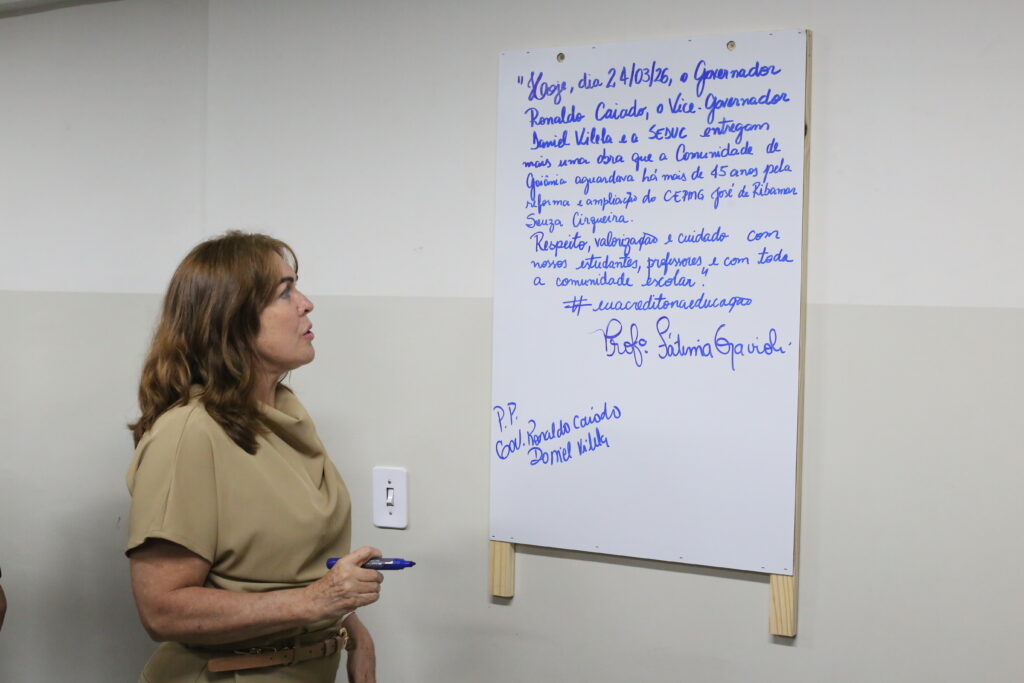 "Hoje, dia 24/03/26, o Governador
Ronaldo Caiado, o Vice-Governador
Daniel Vilela e a SEDUC entregam
mais uma obra que a Comunidade de
Goiânia aguardava há mais de 45 anos pela
reforma e ampliação do CEPMG José de Ribamar
Souza Cirqueira.
Respeito, valorização e cuidado com
nossos estudantes, professores e com toda
a comunidade escolar."
#euacreditonaeducação
Profª. Fátima Gavioli.
P.P.
Gov. Ronaldo Caiado
Daniel Vilela